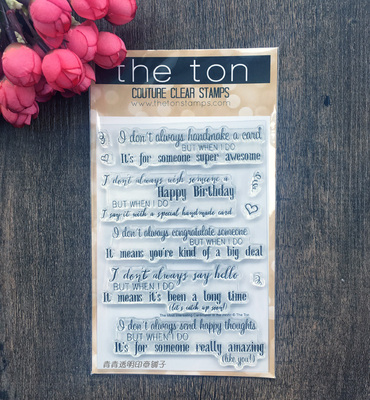 the ton
COUTURE CLEAR STAMPS
www.thetonstamps.com
I don't always handmake a card
BUT WHEN I DO
It's for someone super awesome
I don't always wish someone a
Happy Birthday
BUT WHEN I DO
I say it with a special handmade card
I don't always congratulate someone
BUT WHEN I DO
It means you're kind of a big deal
I don't always say hello
BUT WHEN I DO
It means it's been a long time
(let's catch up soon!)
I don't always send happy thoughts
BUT WHEN I DO
It's for someone really amazing
(like you!)
青青透明印章铺子